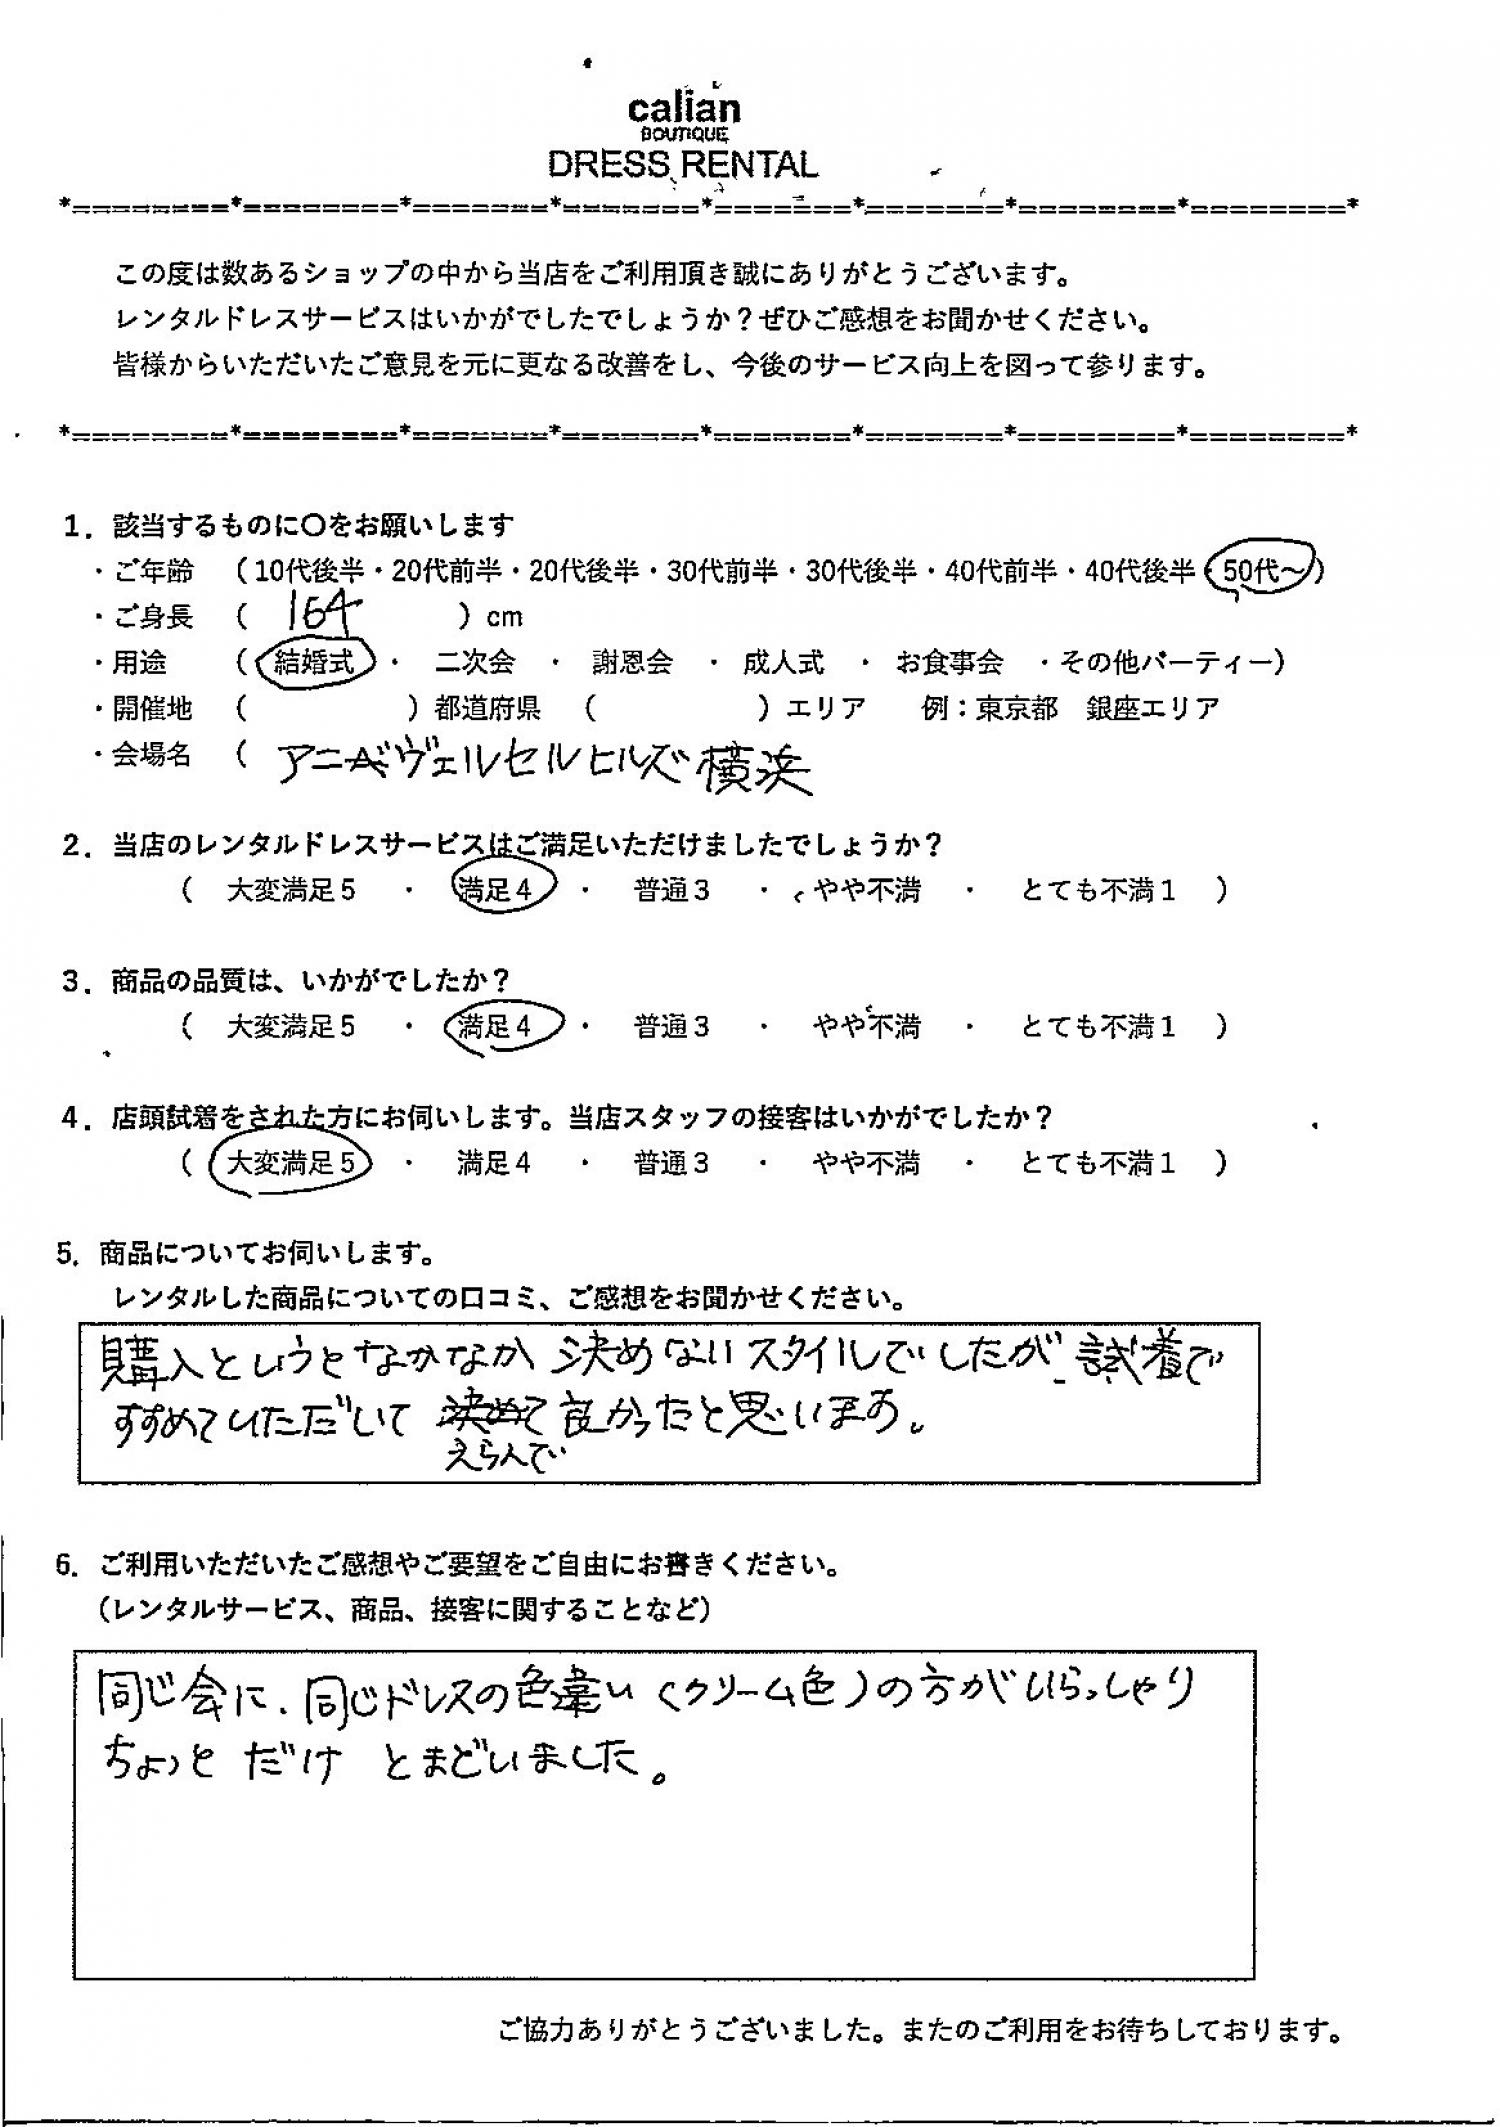 calian
BOUTIQUE
DRESS RENTAL
*========*========*=======*=======*=======*=======*========*========*
この度は数あるショップの中から当店をご利用頂き誠にありがとうございます。
レンタルドレスサービスはいかがでしたでしょうか？ぜひご感想をお聞かせください。
皆様からいただいたご意見を元に更なる改善をし、今後のサービス向上を図って参ります。
*========*========*=======*=======*=======*=======*========*========*
1．該当するものに〇をお願いします
・ご年齢 （10代後半・20代前半・20代後半・30代前半・30代後半・40代前半・40代後半・50代～）
・ご身長 （ 164 ）cm
・用途 （ 結婚式 ・ 二次会 ・ 謝恩会 ・ 成人式 ・ お食事会 ・その他パーティー）
・開催地 （ ）都道府県 （ ）エリア 例：東京都 銀座エリア
・会場名 （ アニヴェルセルヒルズ横浜
2．当店のレンタルドレスサービスはご満足いただけましたでしょうか？
（ 大変満足５ ・ 満足４ ・ 普通３ ・ やや不満 ・ とても不満１ ）
3．商品の品質は、いかがでしたか？
（ 大変満足５ ・ 満足４ ・ 普通３ ・ やや不満 ・ とても不満１ ）
4．店頭試着をされた方にお伺いします。当店スタッフの接客はいかがでしたか？
（ 大変満足５ ・ 満足４ ・ 普通３ ・ やや不満 ・ とても不満１ ）
5．商品についてお伺いします。
レンタルした商品についての口コミ、ご感想をお聞かせください。
購入というとなかなか 決めないスタイルでしたが、試着で
すすめていただいて 決めて 良かったと思います。
えらんで
6．ご利用いただいたご感想やご要望をご自由にお書きください。
（レンタルサービス、商品、接客に関することなど）
同じ会に、同じドレスの色違い（クリーム色）の方がいらっしゃり
ちょっと だけ とまどいました。
ご協力ありがとうございました。またのご利用をお待ちしております。